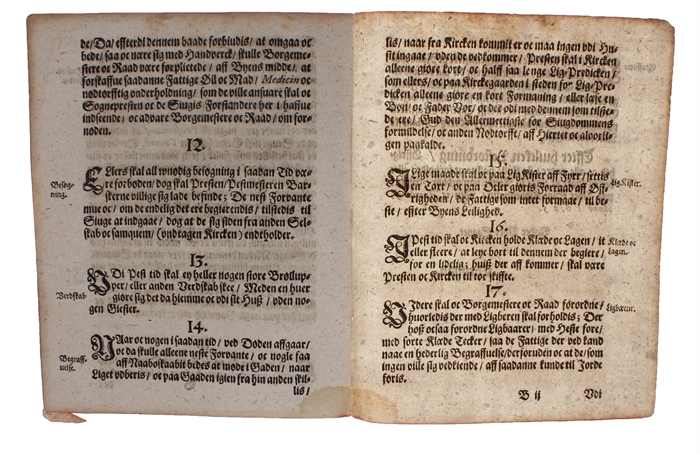 de/ Da/ effterdi dennem baade forbiudis/ at omgaa oc
bede/ saa oc nære sig med Handverck/ skulle Borgeme-
stere oc Raad være forplictede/ aff Byens midde/ at
forskaffue saadanne Fattige Øll oc Mad/ Medicin oc
nødtorfftig underholdning/ som de ville ansuare skal oc
Sognepresten oc de Siugis Forstandere her i haffue
indseende/ oc advare Borgemestere oc Raad/ om for-
nøden.
12.
Besøg-
ning.
Ellers skal all unødig besøgning i saadan Tid væ-
re forboden/ dog skal Presten/ Pestimesteren Bar-
skerne villige sig lade befinde; De nest Forvante
mue oc/ om de endelig det ere begierendis/ tilstedis til
Siuge at indgaae/ dog at de sig siden fra anden Sel-
skab oc samquem/ (undtagen Kircken) endeholder.
13.
Verdskab
Udi Pest tid skal ey heller nogen store Brøllup-
per/ eller anden Verdskab skee/ Meden en huer
giøre sig det da hiemme oc udi sit Huß/ uden no-
gen Giester.
14.
Begraff-
uelse.
Naar oc nogen i saadan tid/ ved Døden affgaar/
oc da skulle alleene neste Forvante/ oc nogle faa
aff Naaboskaabit bedes at møde i Gaden/ naar
Liget udberis/ oc paa Gaaden igien fra hin anden skil-
lis/
lis/ naar fra Kircken kommit er oc maa ingen udi Hu-
sit ingaae/ uden de vedkommer/ Presten skal i Kircken
alleene giøre kort/ oc halff saa lenge Lig-Predicken/
som ellers/ oc paa Kirckegaarden i steden for Lig-Pre-
dicken alleene giøre en kort Formaning/ eller læse en
Bøn/ oc Fader Vor/ oc der udi med dennem som tilste-
de ere/ Gud den Allermectigste for Siugdommens
formildelse/ oc anden Nødtorfft/ aff Hiertet oc alvorli-
gen paakalde.
15.
Ilige maade skal oc paa Lig Kister aff Fyrr/ settis
en Taxt/ oc paa Øcler giøris Forraad aff Øff-
righeden/ de Fattige som intet formaae/ til be-
ste/ effter Byens Leilighed.
Lig Kister.
16.
I Pest tid skal oc Kircken holde Klæde oc Lagen/ it
eller fleere/ at leye bort til dennem der begiere/
for en lidelig; huiß der aff kommer/ skal være
Presten oc Kircken til toe skiffte.
Klæde oc
Lagen.
17.
Udere skal oc Borgemestere oc Raad forordne/
huorledis der med Ligberen skal forholdis; Der
hoß ocsaa forordne Ligbaarer/ med Heste fore/
med sorte Klæde Tecker/ saa de Fattige der ved kand
naae en hederlig Begraffuelse/ der foruden oc at de/ som
ingen ville sig vedkiende/ aff saadanne kunde til Jorde
føris.
Ligbærer.
B ij
Udi